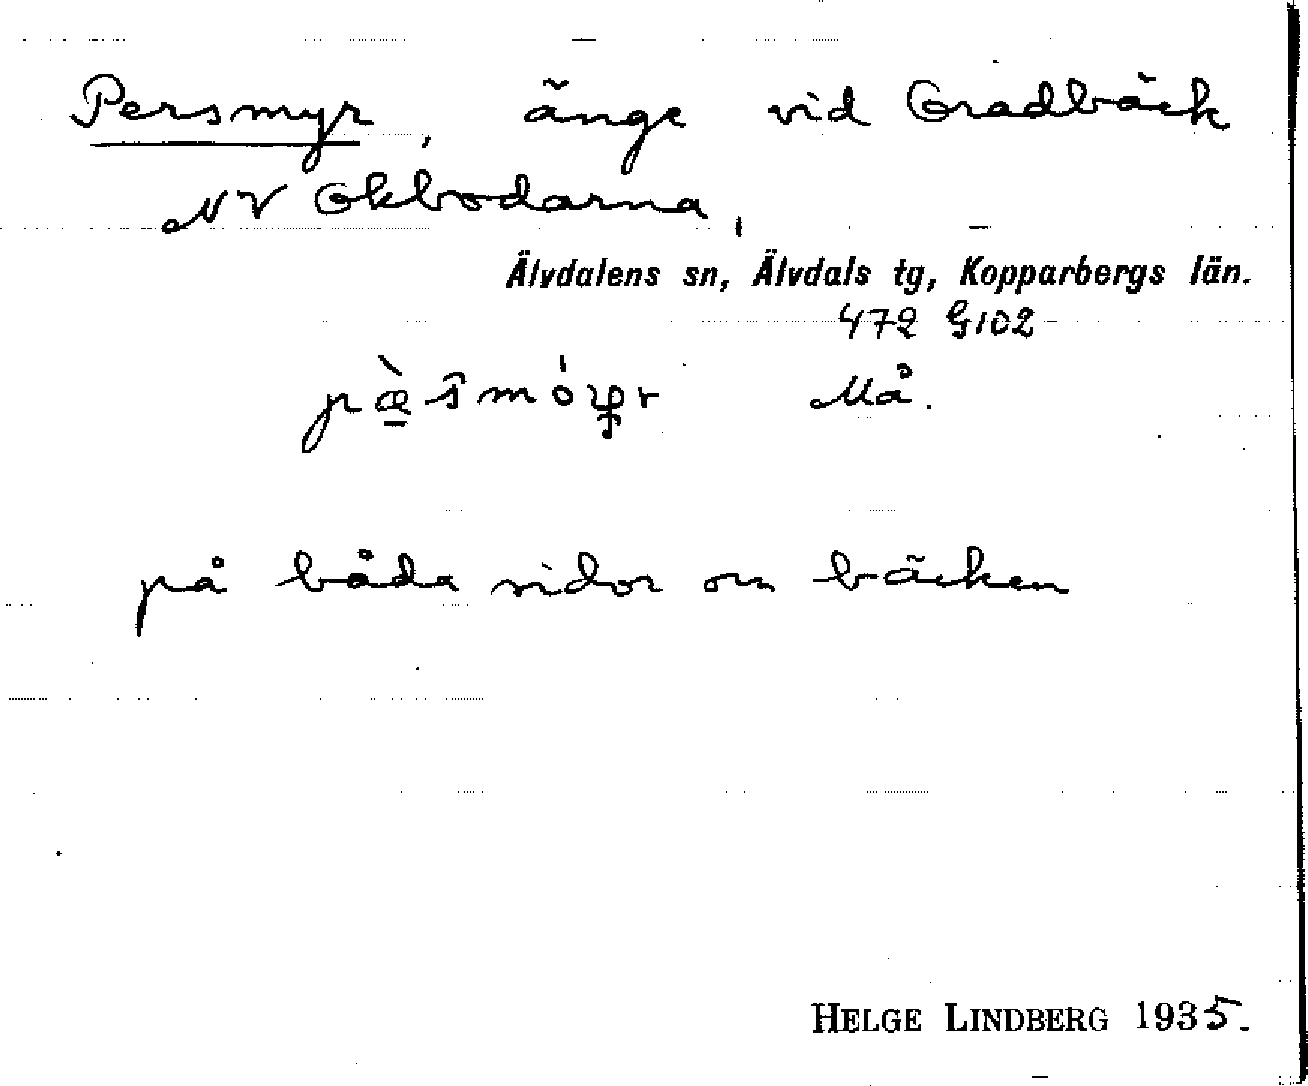 Persmyr, änge vid Gradbäck
NV Okbodarna,
Älvdalens sn, Älvdals tg, Kopparbergs län.
472 G102
Må.
på båda sidor om bäcken
HELGE LINDBERG 1935.